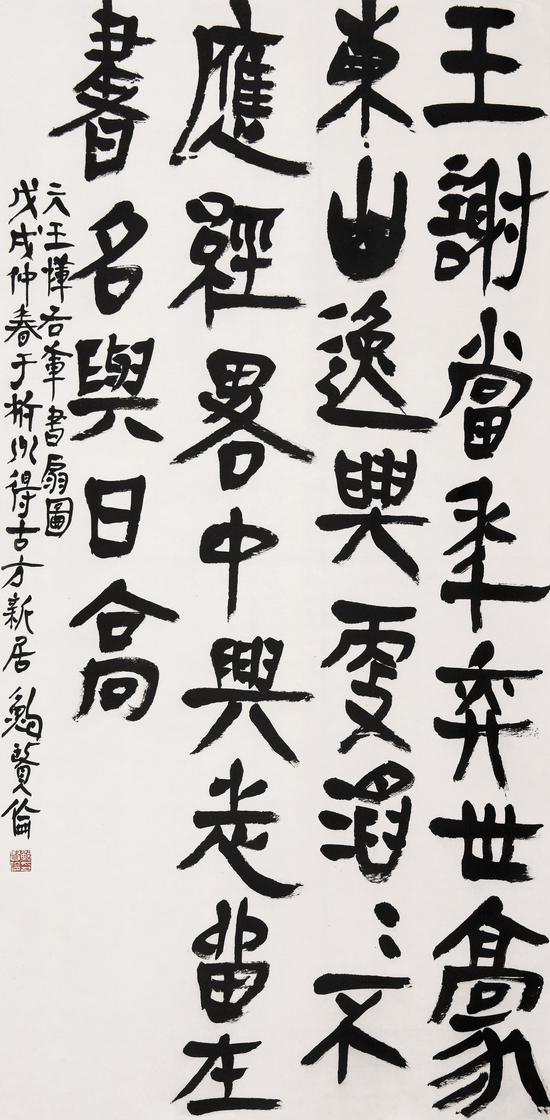 王謝當年奕世豪
東山逸興更滔〻不
應經畧中興志留在
書名與日高
元王惲右軍書扇圖
戊戌仲春于杭州得古方新居 鮑賢倫